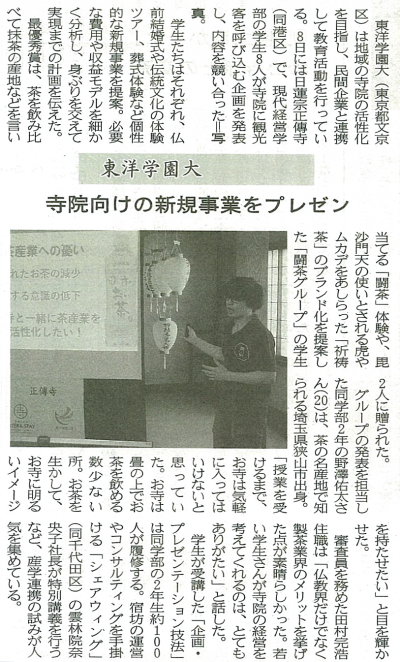 東洋学園大
寺院向けの新規事業をプレゼン
東洋学園大（東京都文京
区）は地域の寺院の活性化
を目指し、民間企業と連携
して教育活動を行ってい
る。8日には日蓮宗正傳寺
（同港区）で、現代経営学
部の学生8人が寺院に観光
客を呼び込む企画を発表
し、内容を競い合った＝写
真。
学生たちはそれぞれ、仏
前結婚式や伝統文化の体験
ツアー、葬式体験など個性
的な新規事業を提案。必要
な費用や収益モデルを細か
く分析し、身ぶりを交えて
実現までの計画を伝えた。
最優秀賞は、茶を飲み比
べて抹茶の産地などを言い
当てる「闘茶」体験や、毘
沙門天の使いとされる虎や
ムカデをあしらった「祈祷
茶」のブランド化を提案し
た「闘茶グループ」の学生
2人に贈られた。
グループの発表を担当し
た同学部2年の野澤佑太さ
ん（20）は、茶の名産地で知
られる埼玉県狭山市出身。
「授業を受
けるまで、
お寺は気軽
に入っては
いけないと
思ってい
た。お寺は
畳の上でお
茶を飲める
数少ない
所。お茶を
生かして、
お寺に明る
いイメージ
を持たせたい」と目を輝か
せた。
審査員を務めた田村完浩
住職は「仏教界だけでなく
製茶業界のメリットを挙げ
た点が素晴らしかった。若
い学生さんが寺院の経営を
考えてくれるのは、とても
ありがたい」と話した。
学生が受講した「企画・
プレゼンテーション技法」
は同学部の2年生約100
人が履修する。宿坊の運営
やコンサルティングを手掛
ける「シェアウィング」
（同千代田区）の雲林院奈
央子社長が特別講義を行う
など、産学連携の試みが人
気を集めている。
茶産業への憂い
れたお茶の減少
する意識の低下
寺と一緒に茶産業を
活性化したい！
正傳寺